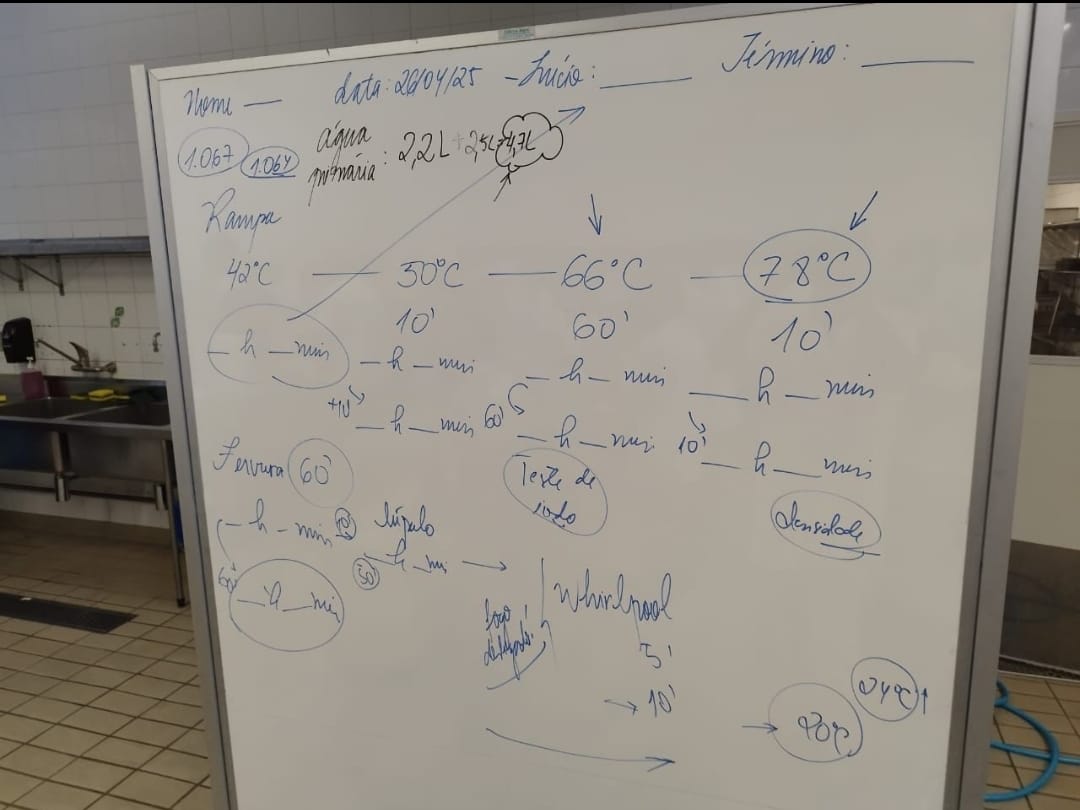 Nome — data: 26/04/25 - Início: ____ Término: ____
1.067 1.064 água primária: 2,2L + 2,5L = 4,7L
Rampa
42°C — 50°C — 66°C — 78°C
10' 60' 10'
_ h _ min _ h _ min _ h _ min _ h _ min
+10' _ h _ min 60' _ h _ min 10' _ h _ min
Fervura 60' Teste de iodo densidade
_ h _ min 10' lúpulo
60' _ h _ min 50' _ h _ mi → Whirlpool
fogo
5'
→ 10'
→ 24°C ↑